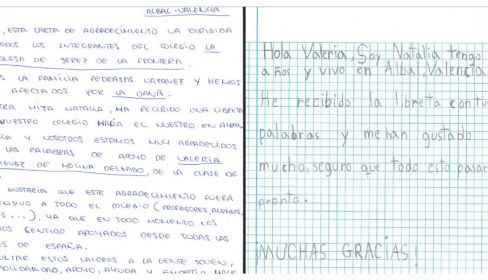 ALBAL-VALENCIA
, ESTA CARTA DE AGRADECIMIENTO VA DIRIGIDA
DOS LOS INTEGRANTES DEL COLEGIO LA
DE JEREZ DE LA FRONTERA.
S LA FAMILIA PEDRAJAS VAZQUEZ Y HEMOS
AFECTADOS POR LA DANA.
TRA HIJA NATALIA, HA RECIBIDO UNA LIBRETA
NUESTRO COLEGIO HACIA EL NUESTRO EN ALBAL
Y NOSOTROS ESTAMOS MUY AGRADECIDOS
LAS PALABRAS DE APOYO DE VALERIA
DE MOLINA DELGADO, DE LA CLASE DE
GUSTARIA QUE ESTE AGRADECIMIENTO FUERA
ENSIVO A TODO EL COLEGIO (PROFESORES, ALUMNOS,
S...), YA QUE EN TODO MOMENTO NOS
MOS SENTIDO APOYADOS DESDE TODAS LAS
ES DE ESPAÑA.
ESTOS VALORES A LA GENTE JOVEN,
SOLIDARIDAD, APOYO, AYUDA Y EMPATIA
Hola Valeria, Soy Natalia tengo
años y vivo en Albal, Valencia
He recibido la libreta con tu
palabras y me han gustado
mucho, seguro que todo esto pasar
pronto.
MUCHAS GRACIAS!